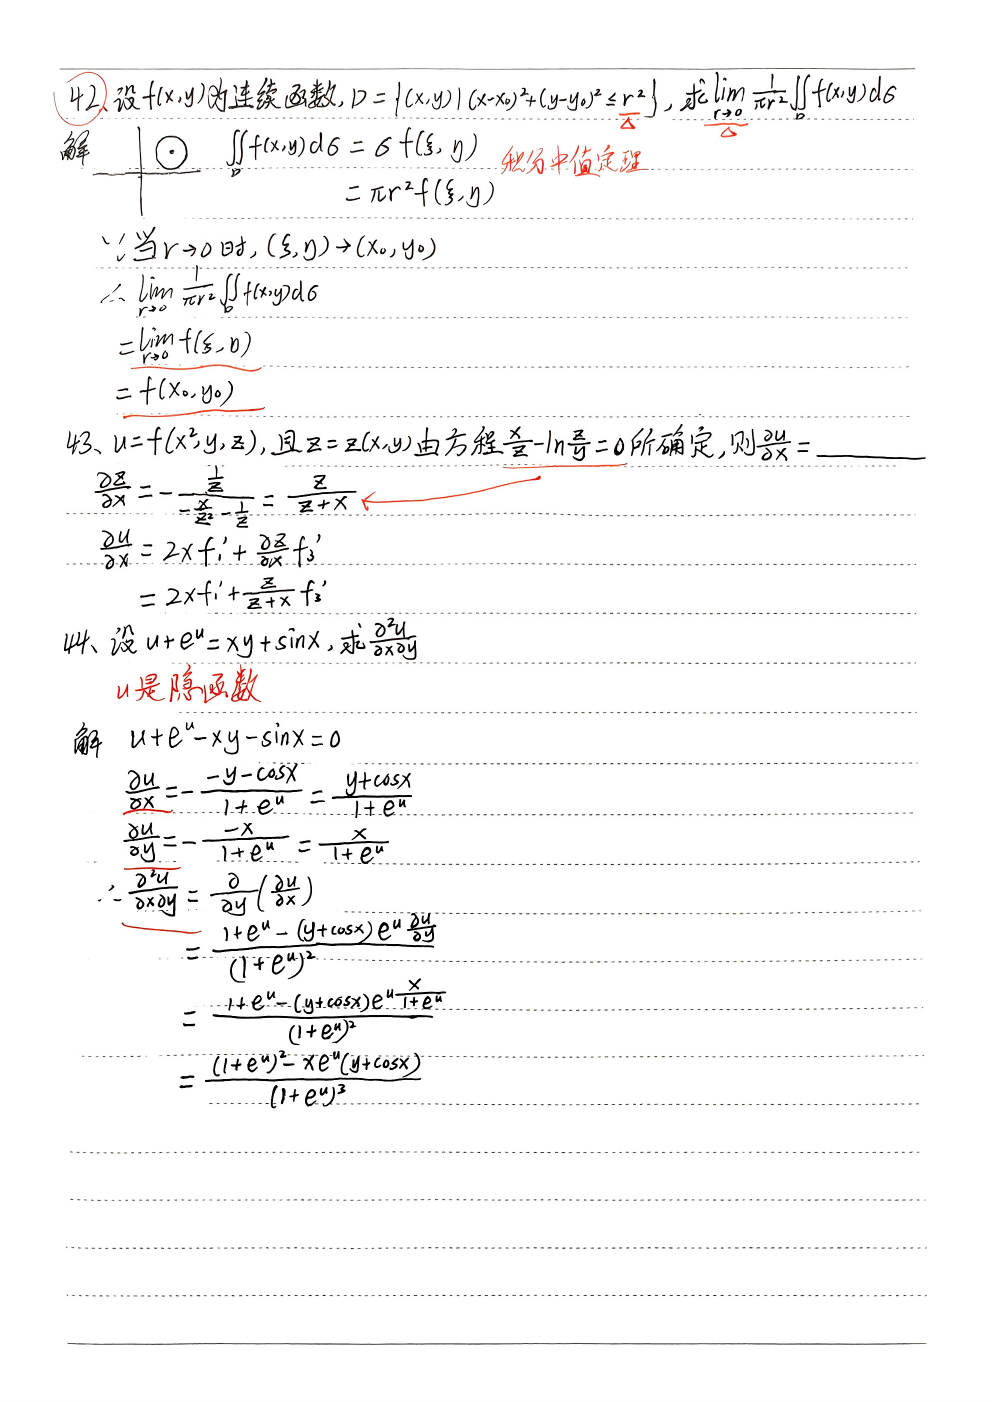 42、设f(x,y)为连续函数,D={(x,y)|(x-x₀)²+(y-y₀)²≤r²},求lim_{r→0} 1/(πr²)∬_D f(x,y)dσ
解 ∬_D f(x,y)dσ=σf(ξ,η) 积分中值定理
=πr²f(ξ,η)
∵当r→0时,(ξ,η)→(x₀,y₀)
∴ lim_{r→0} 1/(πr²)∬_D f(x,y)dσ
=lim_{r→0} f(ξ,η)
=f(x₀,y₀)
43、u=f(x²,y,z),且z=z(x,y)由方程x/z-ln z/y=0所确定,则∂u/∂x=______
∂z/∂x=-(1/z)/(-x/z²-1/z)=z/(z+x)
∂u/∂x=2xf₁'+∂z/∂x f₃'
=2xf₁'+z/(z+x) f₃'
44、设u+eᵘ=xy+sinx,求∂²u/∂x∂y
u是隐函数
解 u+eᵘ-xy-sinx=0
∂u/∂x=-(-y-cosx)/(1+eᵘ)=(y+cosx)/(1+eᵘ)
∂u/∂y=-(-x)/(1+eᵘ)=x/(1+eᵘ)
∴ ∂²u/∂x∂y=∂/∂y(∂u/∂x)
=(1+eᵘ-(y+cosx)eᵘ ∂u/∂y)/(1+eᵘ)²
=(1+eᵘ-(y+cosx)eᵘ x/(1+eᵘ))/(1+eᵘ)²
=((1+eᵘ)²-xeᵘ(y+cosx))/(1+eᵘ)³